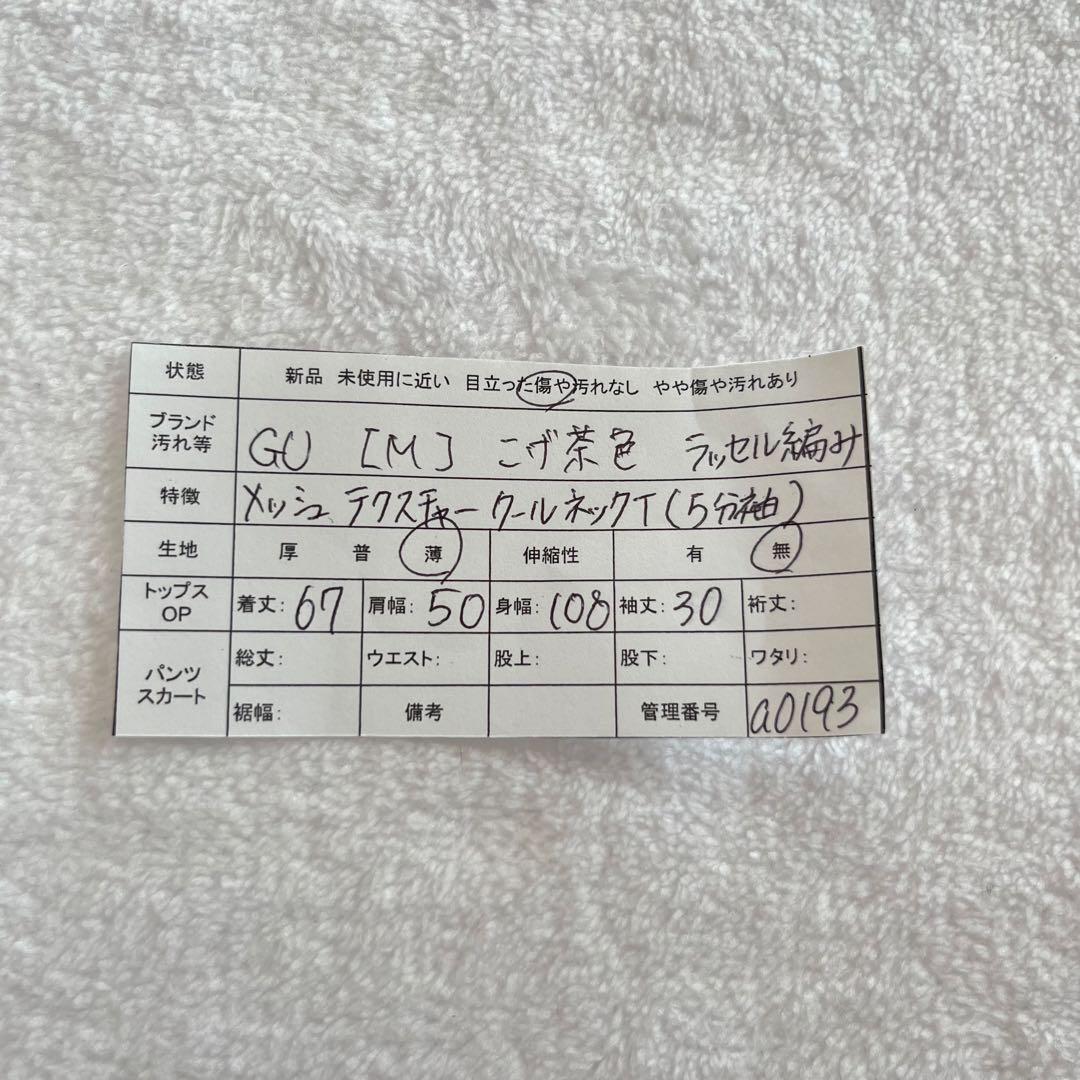 状態 新品 未使用に近い 目立った傷や汚れなし やや傷や汚れあり
ブランド
汚れ等 GU [M] こげ茶色 ラッセル編み
特徴 メッシュ テクスチャー クールネックT(5分袖)
生地 厚 普 薄 伸縮性 有 無
トップス
OP 着丈: 67 肩幅: 50 身幅: 108 袖丈: 30 裄丈:
パンツ
スカート 総丈: ウエスト: 股上: 股下: ワタリ:
裾幅: 備考 管理番号 a0193